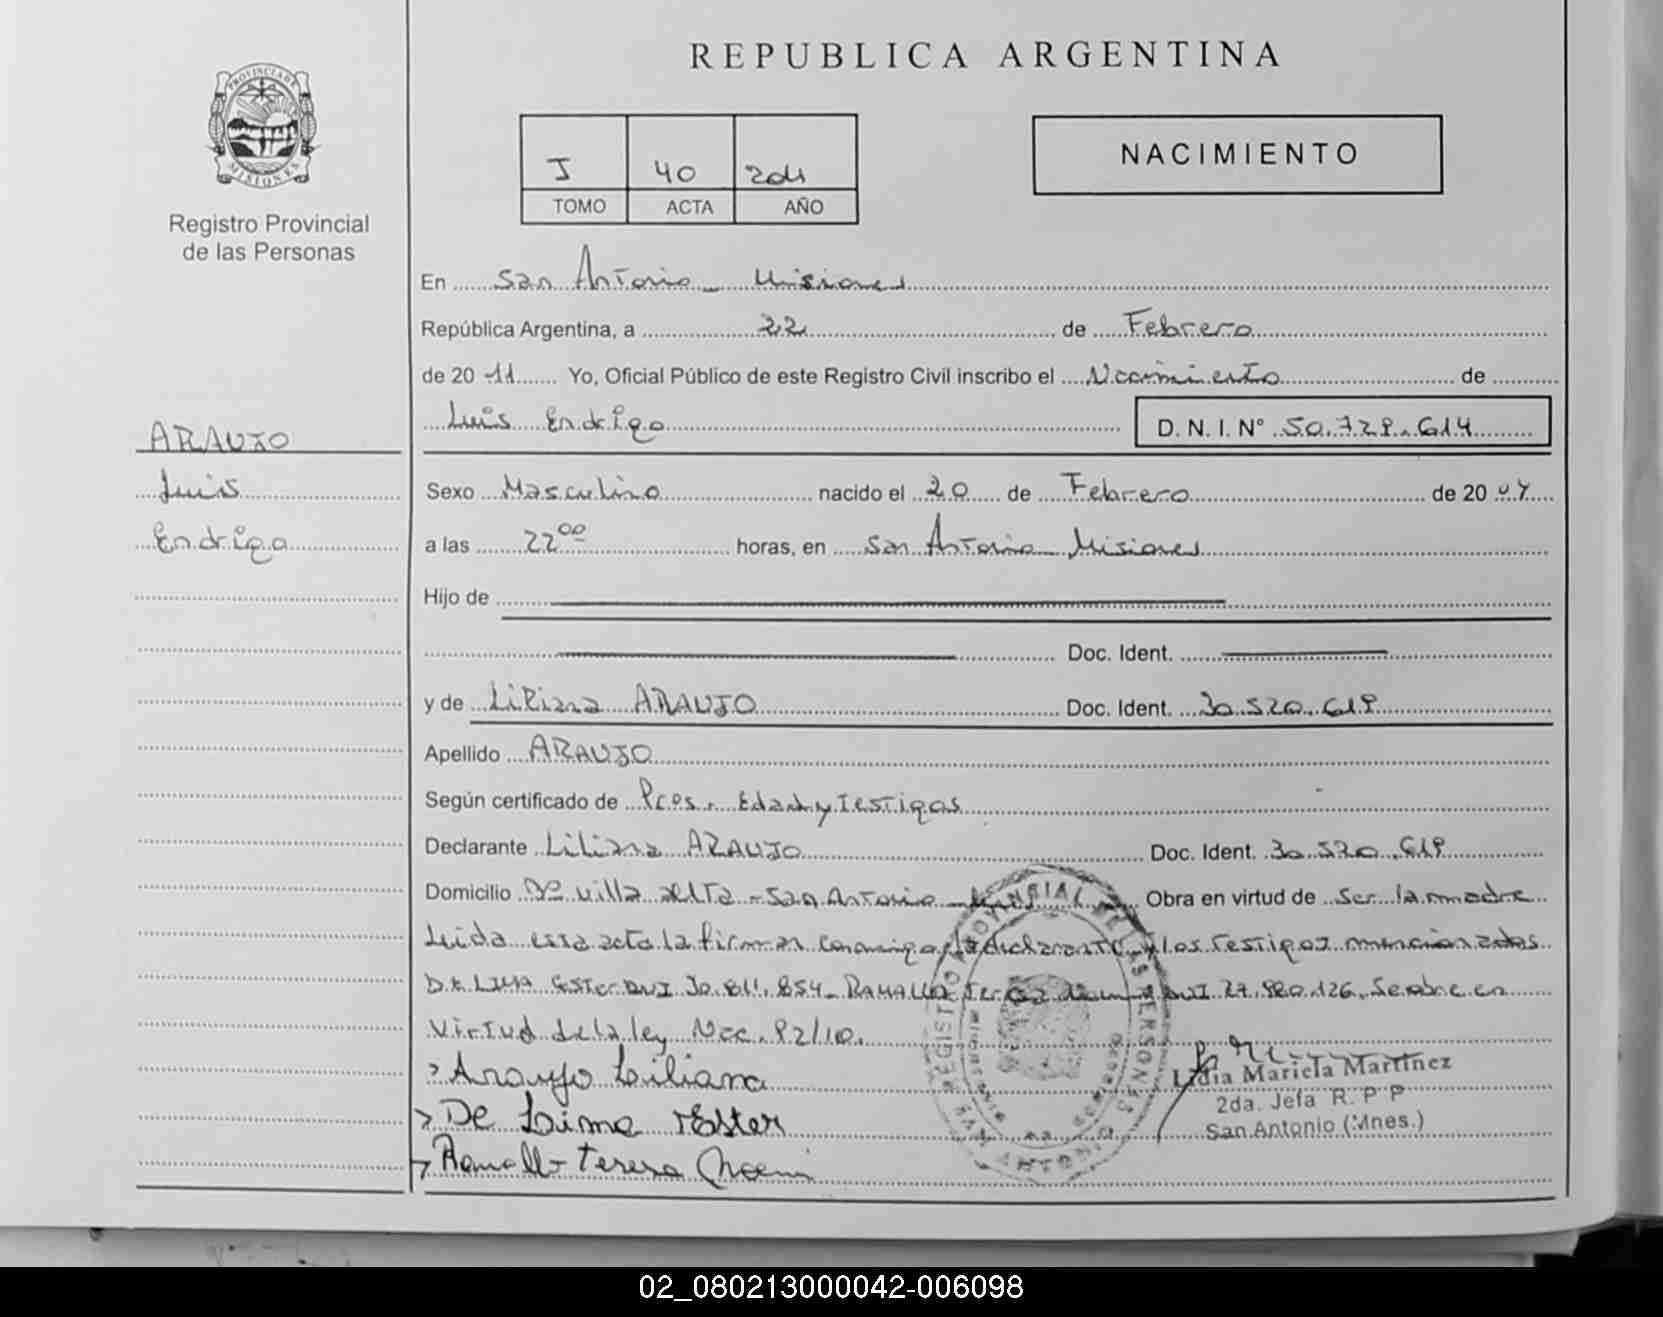 REPUBLICA ARGENTINA
PROVINCIA DE
MISIONES
Registro Provincial
de las Personas
I 40 2011
TOMO ACTA AÑO
NACIMIENTO
En San Antonio - Misiones
República Argentina, a 22 de Febrero
de 20 11 Yo, Oficial Público de este Registro Civil inscribo el Nacimiento de
Luis Endrigo D. N. I. N° 50.729.614
ARAUJO
Luis
Endrigo
Sexo Masculino nacido el 20 de Febrero de 20 04
a las 22 00 horas, en San Antonio Misiones
Hijo de
Doc. Ident.
y de Liliana ARAUJO Doc. Ident. 30.520.619
Apellido ARAUJO
Según certificado de Pres. Edad y Testigos
Declarante Liliana ARAUJO Doc. Ident. 30.520.619
Domicilio Bº Villa alta - San Antonio - Obra en virtud de Ser la madre
Leida esta acta la firman conmigo la declarante y los Testigos mencionados
DE LIMA Ester DNI 30.811.854 - RAMALLO Teresa DNI 27.980.126. Se abre en
Virtud de la ley Nac. 92/10.
Araujo Liliana
De Lima Ester
Ramallo Teresa Noemi
REGISTRO PROVINCIAL DE LAS PERSONAS
SAN ANTONIO
Lidia Mariela Martínez
2da. Jefa R. P P
San Antonio (Mnes.)
02_080213000042-006098